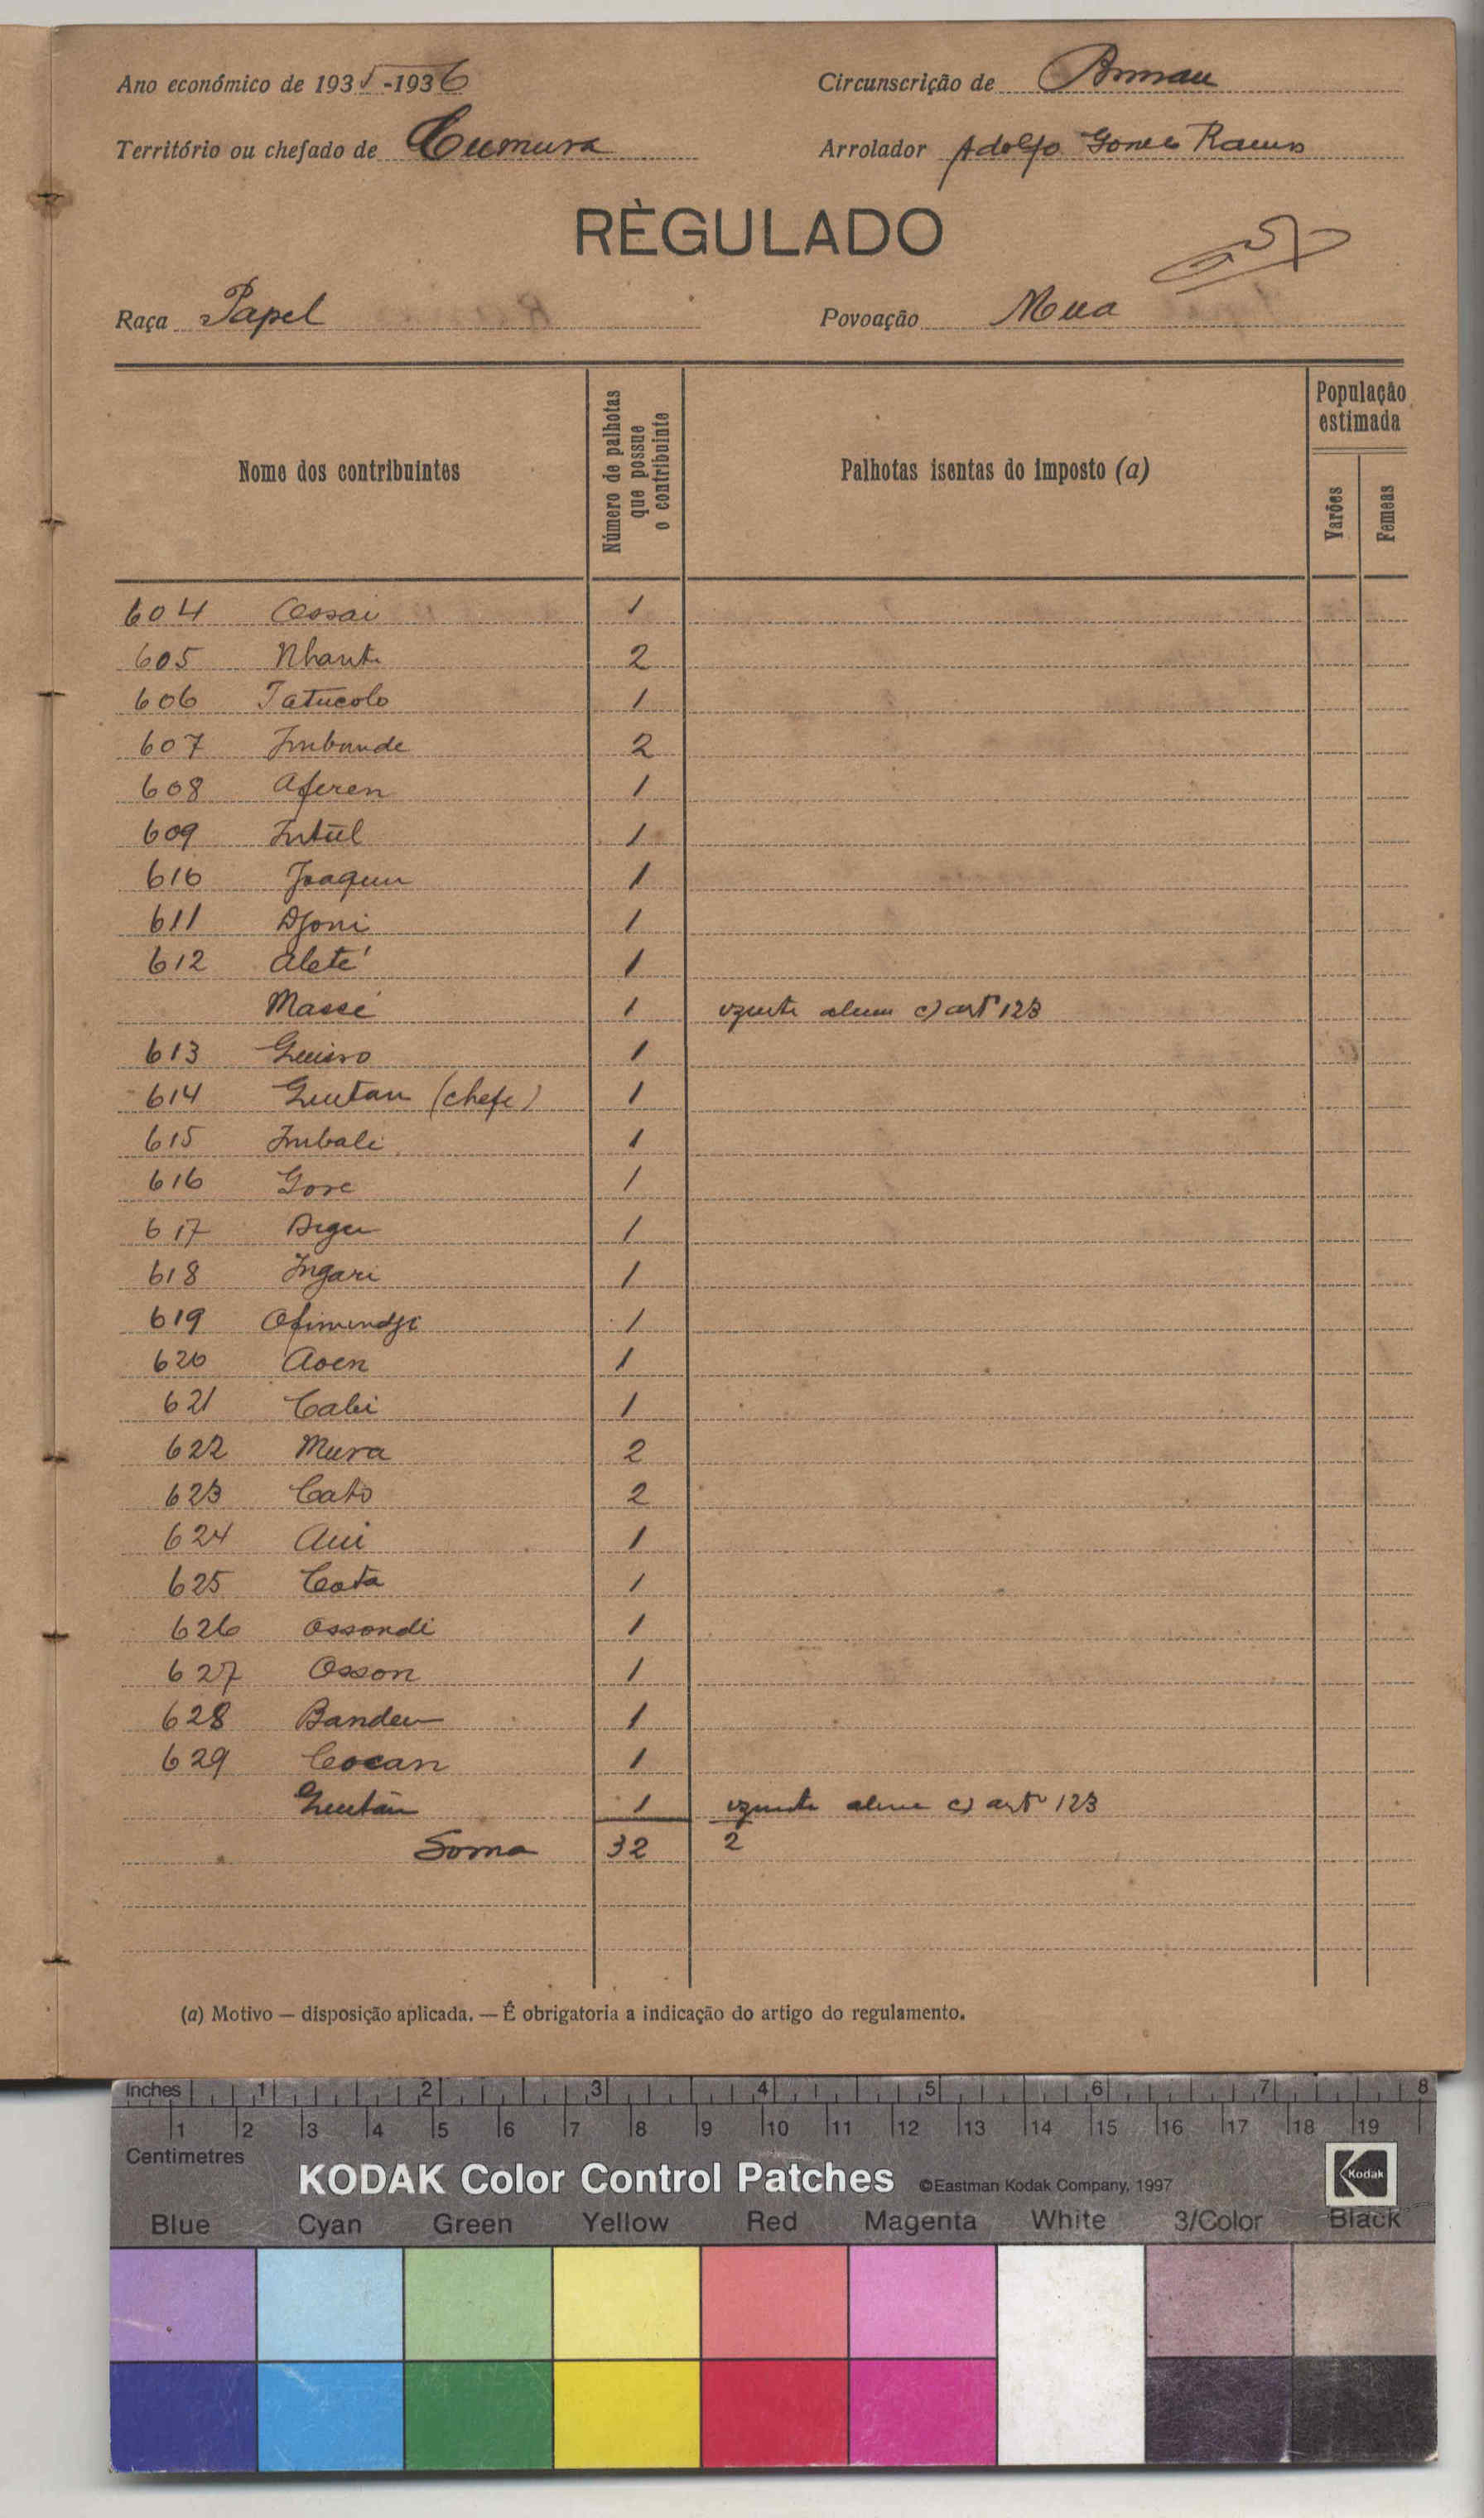 Ano económico de 1935-1936
Circunscrição de Bissau
Território ou chefado de Cumura
Arrolador Adolfo Gomes Ramos
RÈGULADO
Raça Papel
Povoação Mua
Nome dos contribuintes
Número de palhotas que possue o contribuinte
Palhotas isentas do imposto (a)
População estimada
Varões
Femeas
604 Ossai 1
605 Nhante 2
606 Tatucolo 1
607 Imbunde 2
608 Aferen 1
609 Intul 1
610 Joaquim 1
611 Djoni 1
612 Aleté 1
Massé 1 izente alinea c) artº 123
613 1
614 (chefe) 1
615 Imbali 1
616 Gore 1
617 1
618 Ingari 1
619 Ofimendji 1
620 Aoen 1
621 Cabi 1
622 Mura 2
623 Cató 2
624 Aui 1
625 Cota 1
626 Ossondi 1
627 Osson 1
628 1
629 Cocan 1
1 izente alinea c) artº 123
Soma 32 2
(a) Motivo — disposição aplicada. — É obrigatoria a indicação do artigo do regulamento.
Inches 1 2 3 4 5 6 7 8
1 2 3 4 5 6 7 8 9 10 11 12 13 14 15 16 17 18 19
Centimetres
KODAK Color Control Patches ©Eastman Kodak Company, 1997 Kodak
Blue Cyan Green Yellow Red Magenta White 3/Color Black